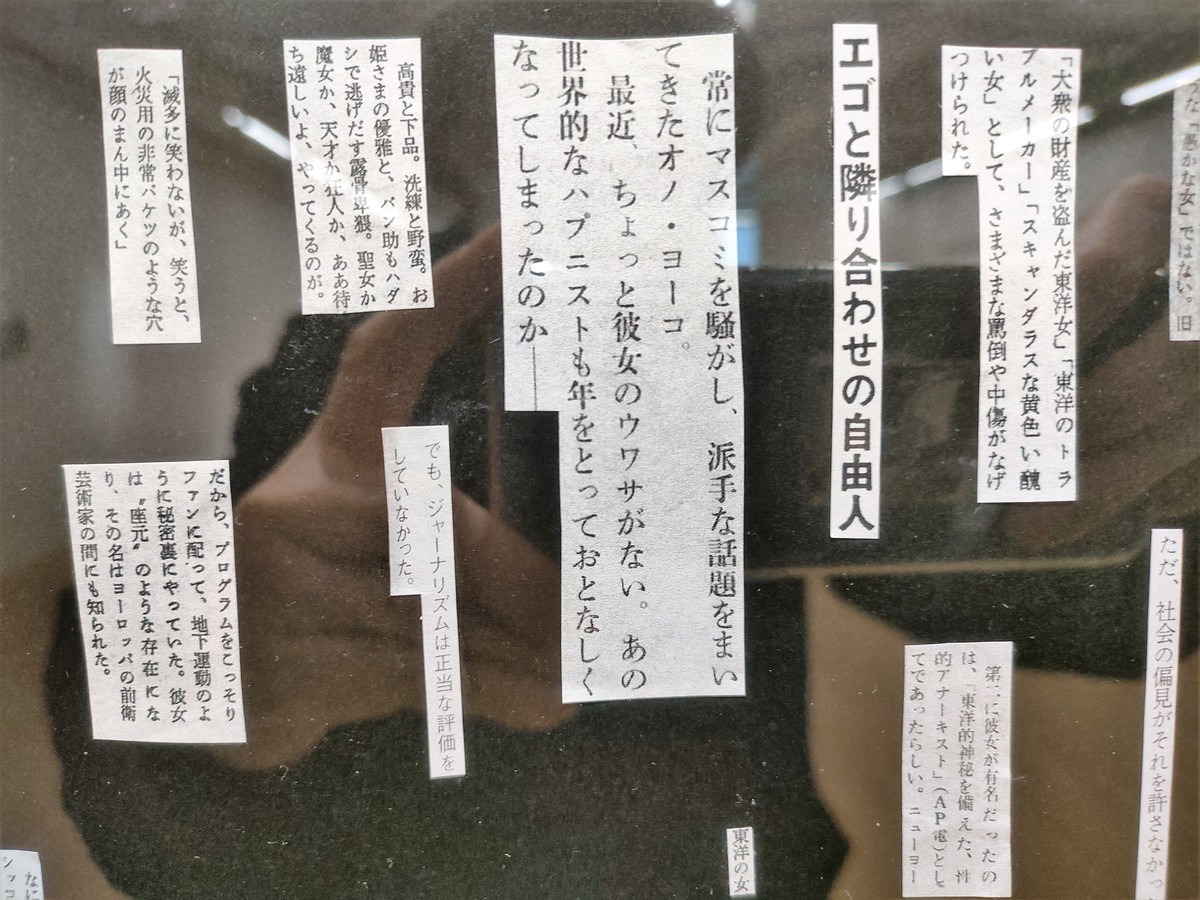 な「悪かな女」ではない。旧
「大衆の財産を盗んだ東洋女」「東洋のトラ
ブルメーカー」「スキャンダラスな黄色い醜
い女」として、さまざまな罵倒や中傷がなげ
つけられた。
エゴと隣り合わせの自由人
常にマスコミを騒がし、派手な話題をまい
てきたオノ・ヨーコ。
最近、ちょっと彼女のウワサがない。あの
世界的なハプニストも年をとっておとなしく
なってしまったのか——
高貴と下品。洗練と野蛮。お
姫さまの優雅と、パン助もハダ
シで逃げだす露骨卑猥。聖女か
魔女か、天才か狂人か、ああ待
ち遠しいよ、やってくるのが。
「滅多に笑わないが、笑うと、
火災用の非常バケツのような穴
が顔のまん中にあく」
ただ、社会の偏見がそれを許さなかっ
第二に彼女が有名だったの
は、「東洋的神秘を備えた、性
的アナーキスト」(AP電)とし
てであったらしい。ニューヨー
東洋の女
でも、ジャーナリズムは正当な評価を
していなかった。
だから、プログラムをこっそり
ファンに配って、地下運動のよ
うに秘密裏にやっていた。彼女
は〝座元〟のような存在にな
り、その名はヨーロッパの前衛
芸術家の間にも知られた。
なに
シッコ